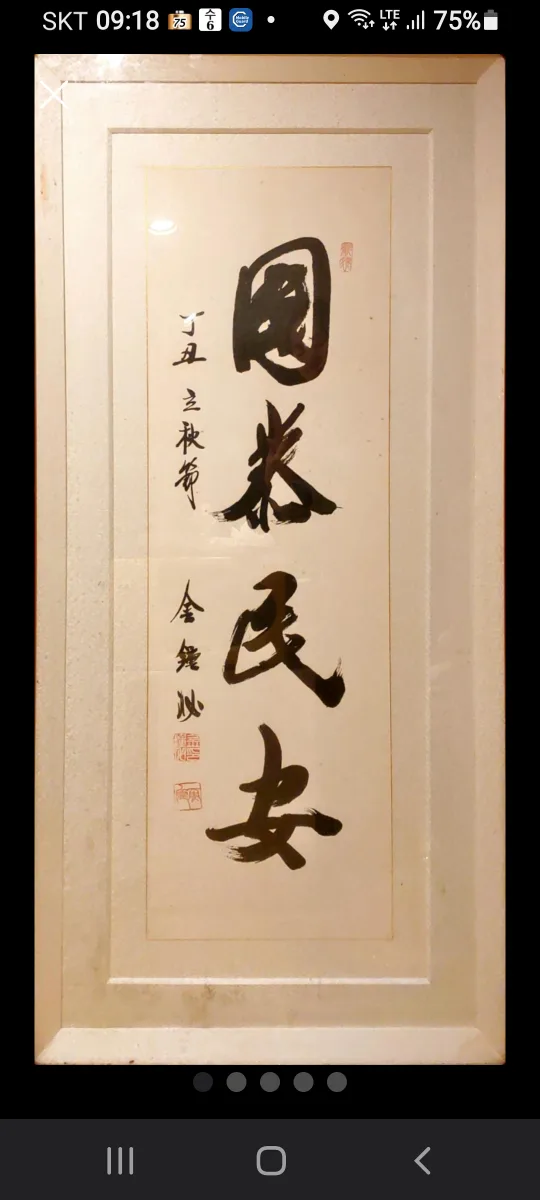 SKT 09:18 75 수 6 LTE 75%
國泰民安
丁丑 立秋節
金鍾泌